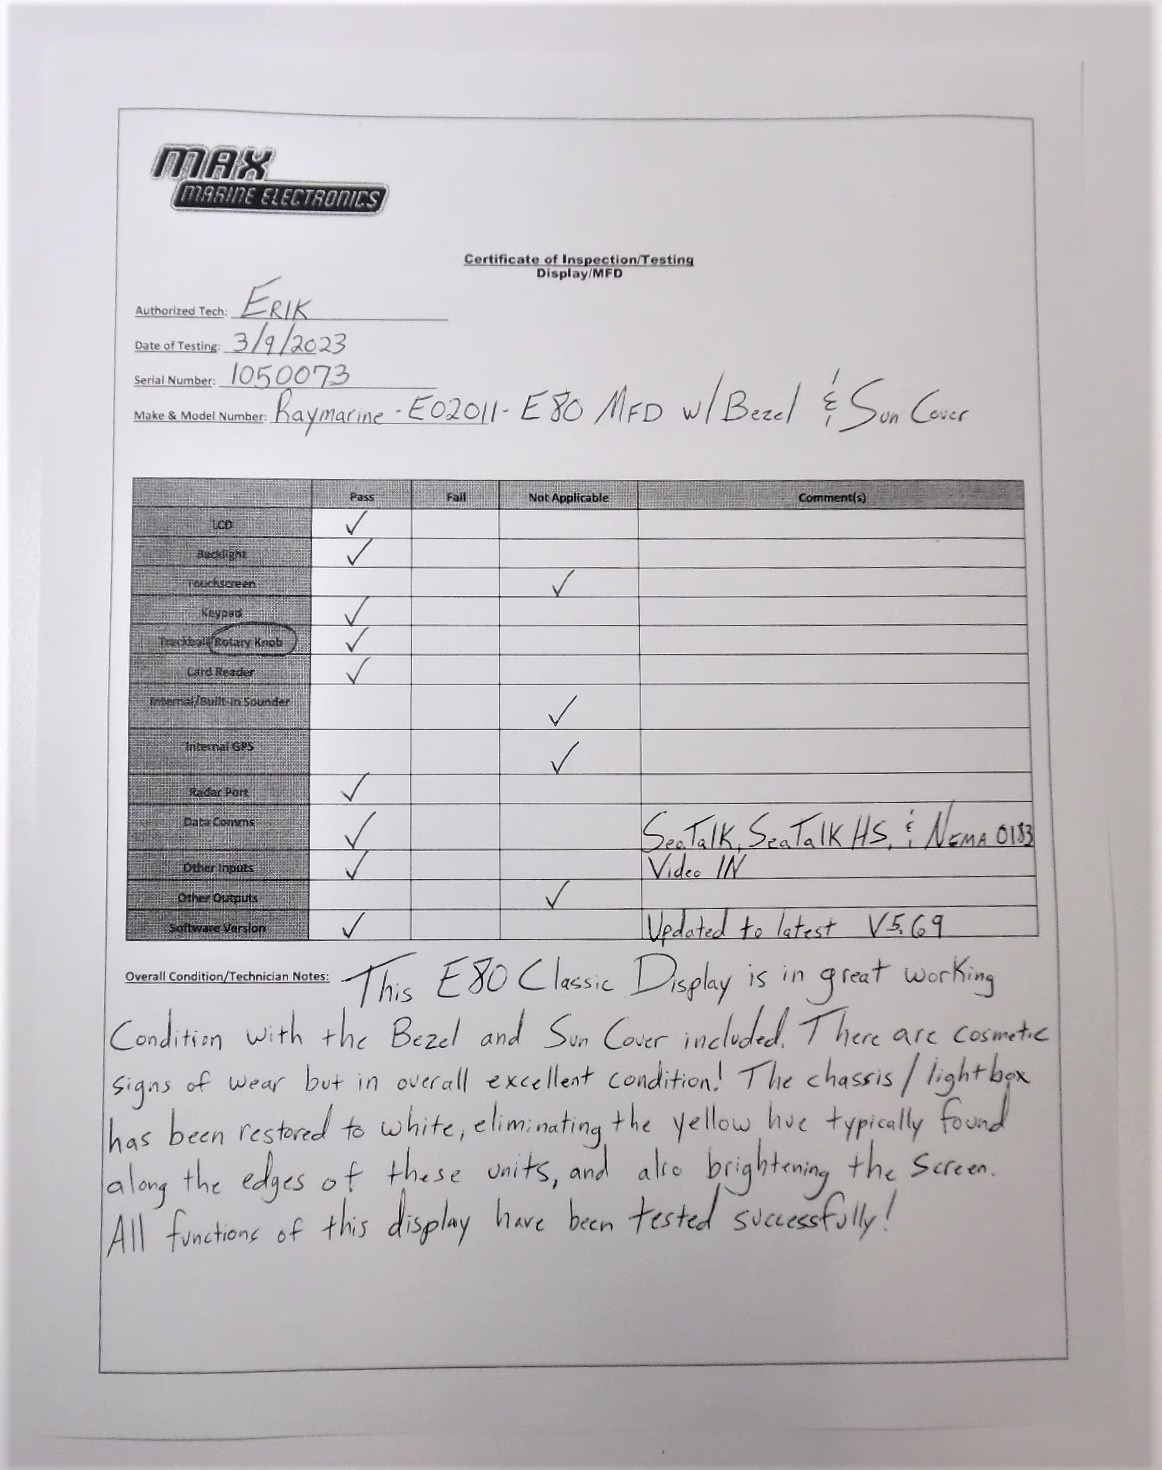 MAX
MARINE ELECTRONICS
Certificate of Inspection/Testing
Display/MFD
Authorized Tech: ERIK
Date of Testing: 3/9/2023
Serial Number: 1050073
Make & Model Number: Raymarine - E02011 - E80 MFD w/Bezel & Sun Cover
Pass Fail Not Applicable Comment(s)
LCD ✓
Backlight ✓
Touchscreen ✓
Keypad ✓
Trackball/Rotary Knob ✓
Card Reader ✓
Internal/Built-in Sounder ✓
Internal GPS ✓
Radar Port ✓
Data Comms ✓ SeaTalk, SeaTalk HS, & NEMA 0183
Other Inputs ✓ Video IN
Other Outputs ✓
Software Version ✓ Updated to latest V5.69
Overall Condition/Technician Notes: This E80 Classic Display is in great working
Condition with the Bezel and Sun Cover included. There are cosmetic
signs of wear but in overall excellent condition! The chassis/lightbox
has been restored to white, eliminating the yellow hue typically found
along the edges of these units, and also brightening the screen.
All functions of this display have been tested successfully!